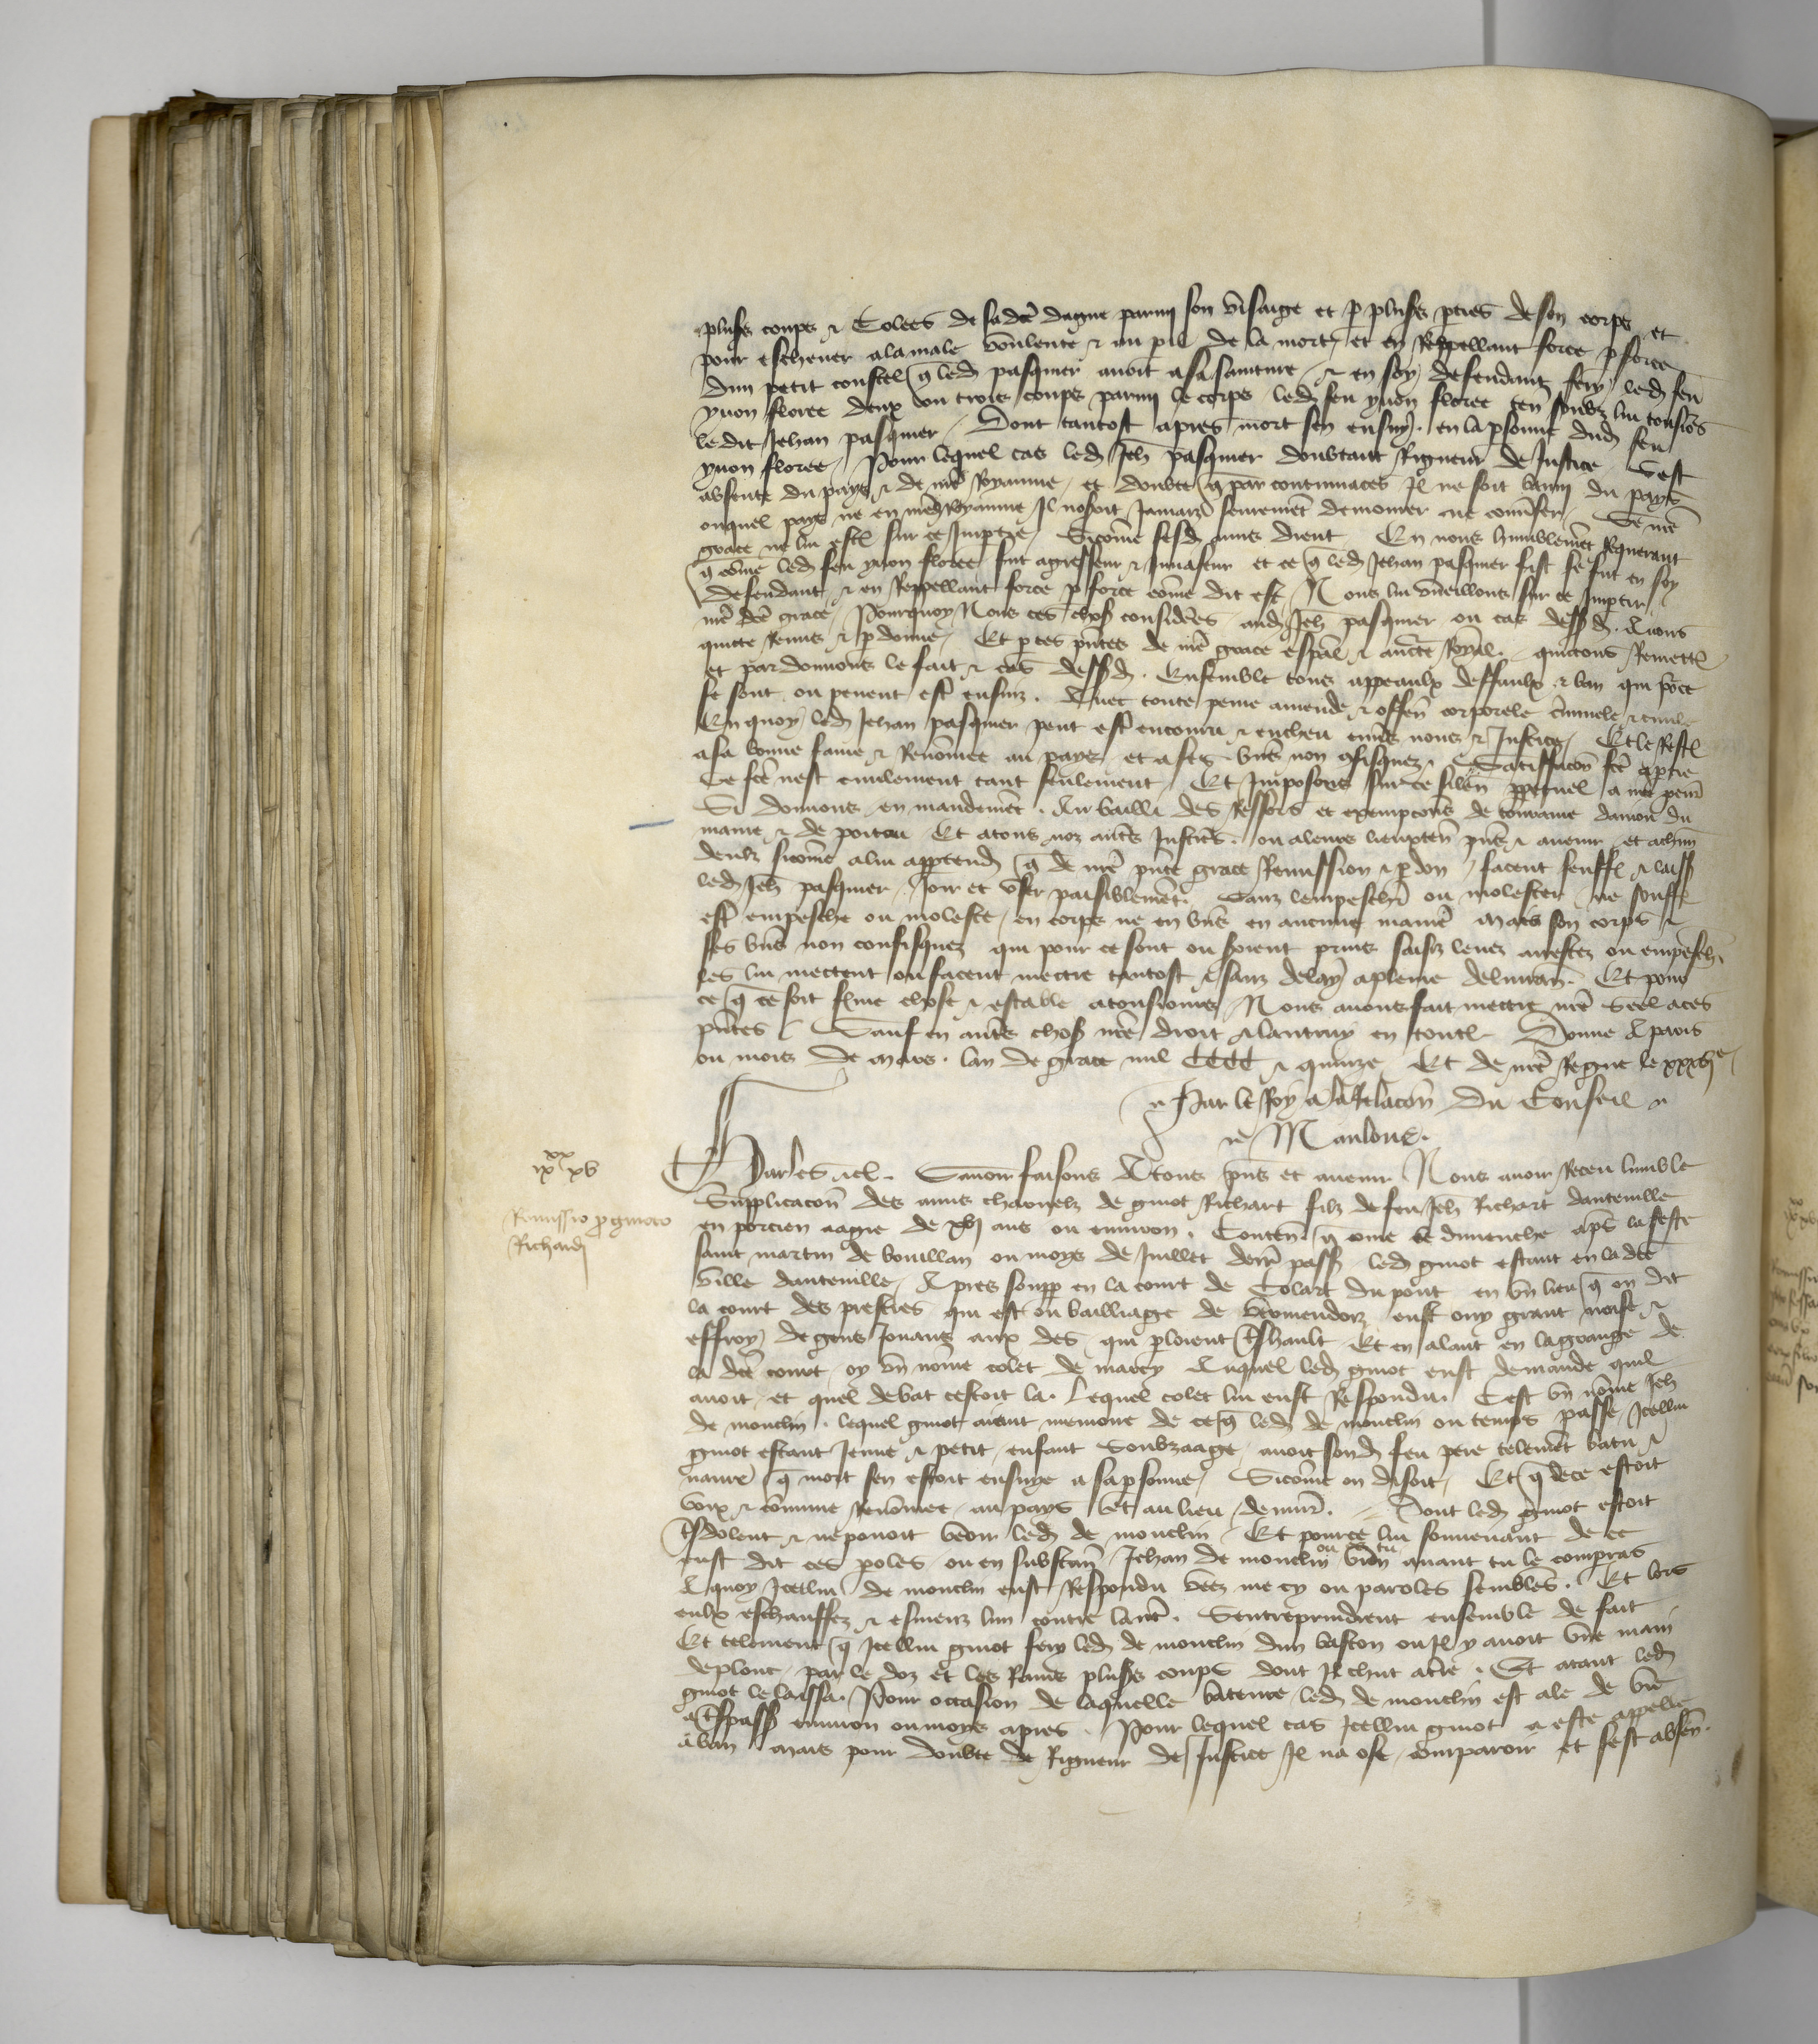 pluss coups & Colees de sa dce dague parmi son visaige et p pluss pties de son corps et
pour eschever a la male voulente & au pil de la mort et en Reppellant force p force
dun petit coustel q led pasquier avoit a sa sainture & en soy defendant fery led feu
yvon floree deux ou trois coups parmi le corps led feu yvon floree tousjours
ledit Jehan pasquier Dont tantost apres mort sen ensuy en la psonne dud feu
yvon floree Pour lequel cas led Jeh pasquier doubtant Rigueur de Justice sest
absente du pays & de nre Royaume et doubte q par contumaces Il ne soit banny du pays
ouquel pays ne en nred Royaume Il noseroit Jamais seurement demourer ne converser Se nre
grace ne lui est sur ce Impartie Sicome sesd amis dient En nous humblemet Requerant
q come led feu yvon floree fut agresseur & Invaseur et ce q led Jehan pasquier fist se fut en soy
defendant & en Reppellant force p force come dit est Nous lui vueillons sur ce Impartir
nre dce grace Pourquoy Nous ces choss considerees aud Jeh pasquier ou cas dessd Avons
quicte Remis & pdonne Et p ces pntes de nre grace espal & aucte Royal quictons Remett
et pardonnons le fait & cas dessd Ensemble tous appeaulx deffaulx & ban qui pour ce
se sont ou pevent estre ensuiz Avec toute peine amende & offense corporele criminele & civile
En quoy led Jehan pasquier peut estre encouru & encheu envers nous & Justice Et le Rest
a sa bonne fame & Renommee au pays et a ses biens non confisquez Satisfacon fce a ptie
Se fce nest civilement tant seulement Et Imposons sur ce silence ppetuel a nre procur
Si donnons en mandemet Au bailli des Ressors et exempcons de touraine danjou du
maine & de poitou Et a tous noz autres Justiciers ou a leurs lieuxten pns & avenir et a chun
deulx sicome a lui apptendra q de nre pnte grace Remission & pdon facent seuffr & laiss
led Jeh pasquier Joir et user paisiblemet Sanz lempescher ou molester ne souffrir
estre empesche ou moleste en corps ne en biens en aucune maniere Mais son corps &
ses biens non confisquez qui pour ce sont ou seroient prins saisiz levez arrestez ou empesch
les lui mectent ou facent mectre tantost & sanz delay a pleine delivrance Et pour
ce q ce soit ferme chose & estable a tousjoursmes Nous avons fait mectre nre Seel a ces
pntes Sauf en autres choses nre droit & lautruy en toutes Donne A paris
ou mois de mars lan de grace mil CCCC & quinze Et de nre Regne le xxxvj e
Par le Roy a la Relacon du Conseil
Mauloue
ix xx xv
Remissio p guioto
Richardi
Charles &c Savoir faisons A tous pns et avenir Nous avoir Receu humble
Supplicacon des amis charnelz de guiot Richart filz de feu Jeh Richart danteville
en porcien aagie de xvj ans ou environ Conten q come le dimenche aps la feste
saint martin de bouillan ou moys de Juillet derr pass led guiot estant en la dce
ville danteville Apres soupp en la court de Colart du pont en un lieu q on dit
la court des prestres qui est ou bailliage de vermendoiz eust ouy grant noise &
effroy de gens Jouans aux des qui ploient tshault Et en alant en la grange de
la dce court oy un nome colet de marcy Auquel led guiot eust demande quil
avoit et quel debat cestoit la Lequel colet lui eust Respondu Cest un nome Jeh
de monclin lequel guiot aient memoire de ce q led de monclin ou temps passe Icellui
guiot estant Jeune & petit enfant soubzaage avoit sond feu pere telemet batu &
navre q mort sen estoit ensuye a sa psonne Sicome on disoit Et q de ce estoit
voix & comune Renommee au pays et au lieu demur Dont led guiot estoit
tsdolent & ne povoit veoir led de monclin Et pource lui souvenant de ce
eust dit ces poles ou en substance Jehan de monclin ou vien tu avant tu le compras
A quoy Icellui de monclin eust Respondu veez me cy ou paroles semblables Et lors
eulx eschauffez & esmeuz lun contre lautre Sentreprindrent ensemble de fait
Et telement q Icellui guiot fery led de monclin dun baston ou Il y avoit une main
de plonc par le doz et les Rains pluss coups dont Il chut a terre Et atant led
guiot le laissa Pour occasion de laquelle bateure led de monclin est ale de vie
a tspass environ ou moys apres Pour lequel cas Icellui guiot a este appelle
a ban Mais pour doubte de Rigueur de Justice Il na ose comparoir et sest absen